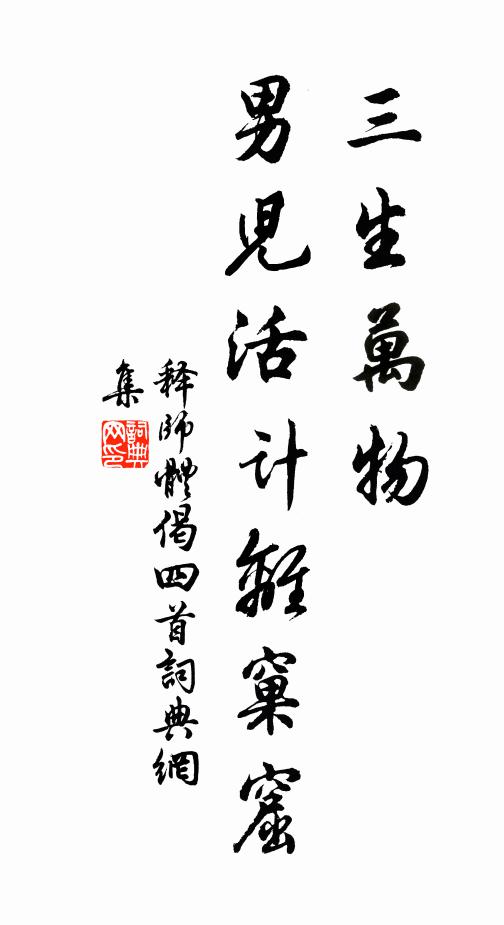 三生萬物
男児活计離窠窟
释師體偈四首詞典網
集
詞典网印